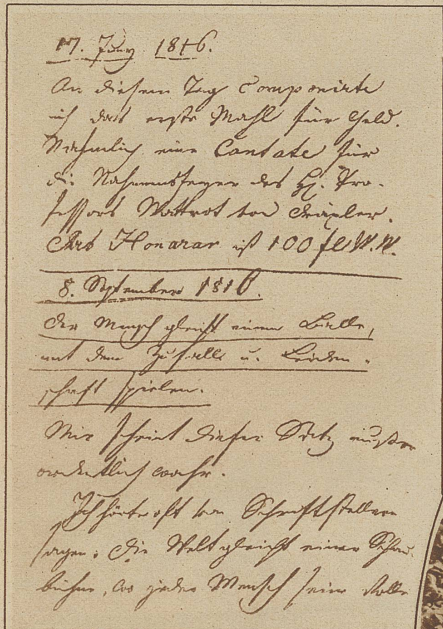 17. Juny 1816.
An diesem Tag componirte
ich das erste Mahl für Geld.
Nähmlich eine Cantate für
die Nahmensfeyer des H. Pro-
fessors Wattrot von Dräxler.
Das Honorar ist 100 fl W. W.
8. September 1816.
Der Mensch gleicht einem Balle,
mit dem Zufall u. Leiden-
schaft spielen.
Mir scheint dieser Satz außer-
ordentlich wahr.
Ich hörte oft von Schriftstellern
sagen: Die Welt gleicht einer Schau-
bühne, wo jeder Mensch seine Rolle